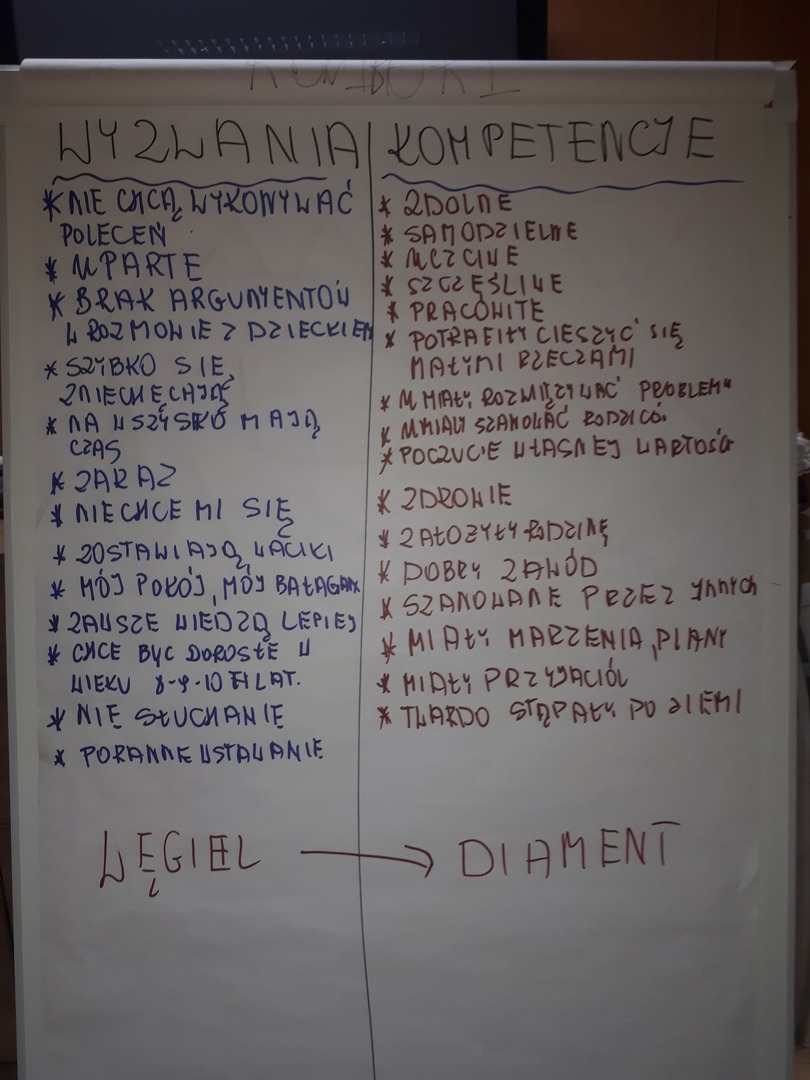 WYZWANIA
* NIE CHCĄ WYKONYWAĆ
POLECEŃ
* UPARTE
* BRAK ARGUMENTÓW
W ROZMOWIE Z DZIECKIEM
* SZYBKO SIĘ
ZNIECHĘCAJĄ
* NA WSZYSKO MAJĄ
CZAS
* ZARAZ
* NIECHCE MI SIĘ
* ZOSTAWIAJĄ WACIKI
* MÓJ POKÓJ, MÓJ BAŁAGAN
* ZAWSZE WIEDZĄ LEPIEJ
* CHCE BYĆ DOROSŁE W
WIEKU 8-9-10 LAT.
* NIE SŁUCHANIE
* PORANNE WSTAWANIE
KOMPETENCJE
* ZDOLNE
* SAMODZIELNE
* UCZCIWE
* SZCZĘŚLIWE
* PRACOWITE
* POTRAFIŁY CIESZYĆ SIĘ
MAŁYMI RZECZAMI
* UMIAŁY ROZWIĄZYWAĆ PROBLEMY
* UMIAŁY SZANOWAĆ RODZICÓW
* POCZUCIE WŁASNEJ WARTOŚCI
* ZDROWIE
* ZAŁOŻYŁY RODZINĘ
* DOBRY ZAWÓD
* SZANOWANE PRZEZ YNNYCH
* MIAŁY MARZENIA, PLANY
* MIAŁY PRZYJACIÓŁ
* TWARDO STĄPAŁY PO ZIEMI
WĘGIEL → DIAMENT